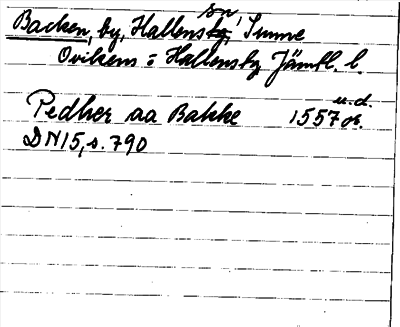 Backen, by, Hallensby, sn, Sunne
Ovikens = Hallensby Jämtl. l.
Pedher aa Bakke 1557 u.d. or.
DN 15, s. 790